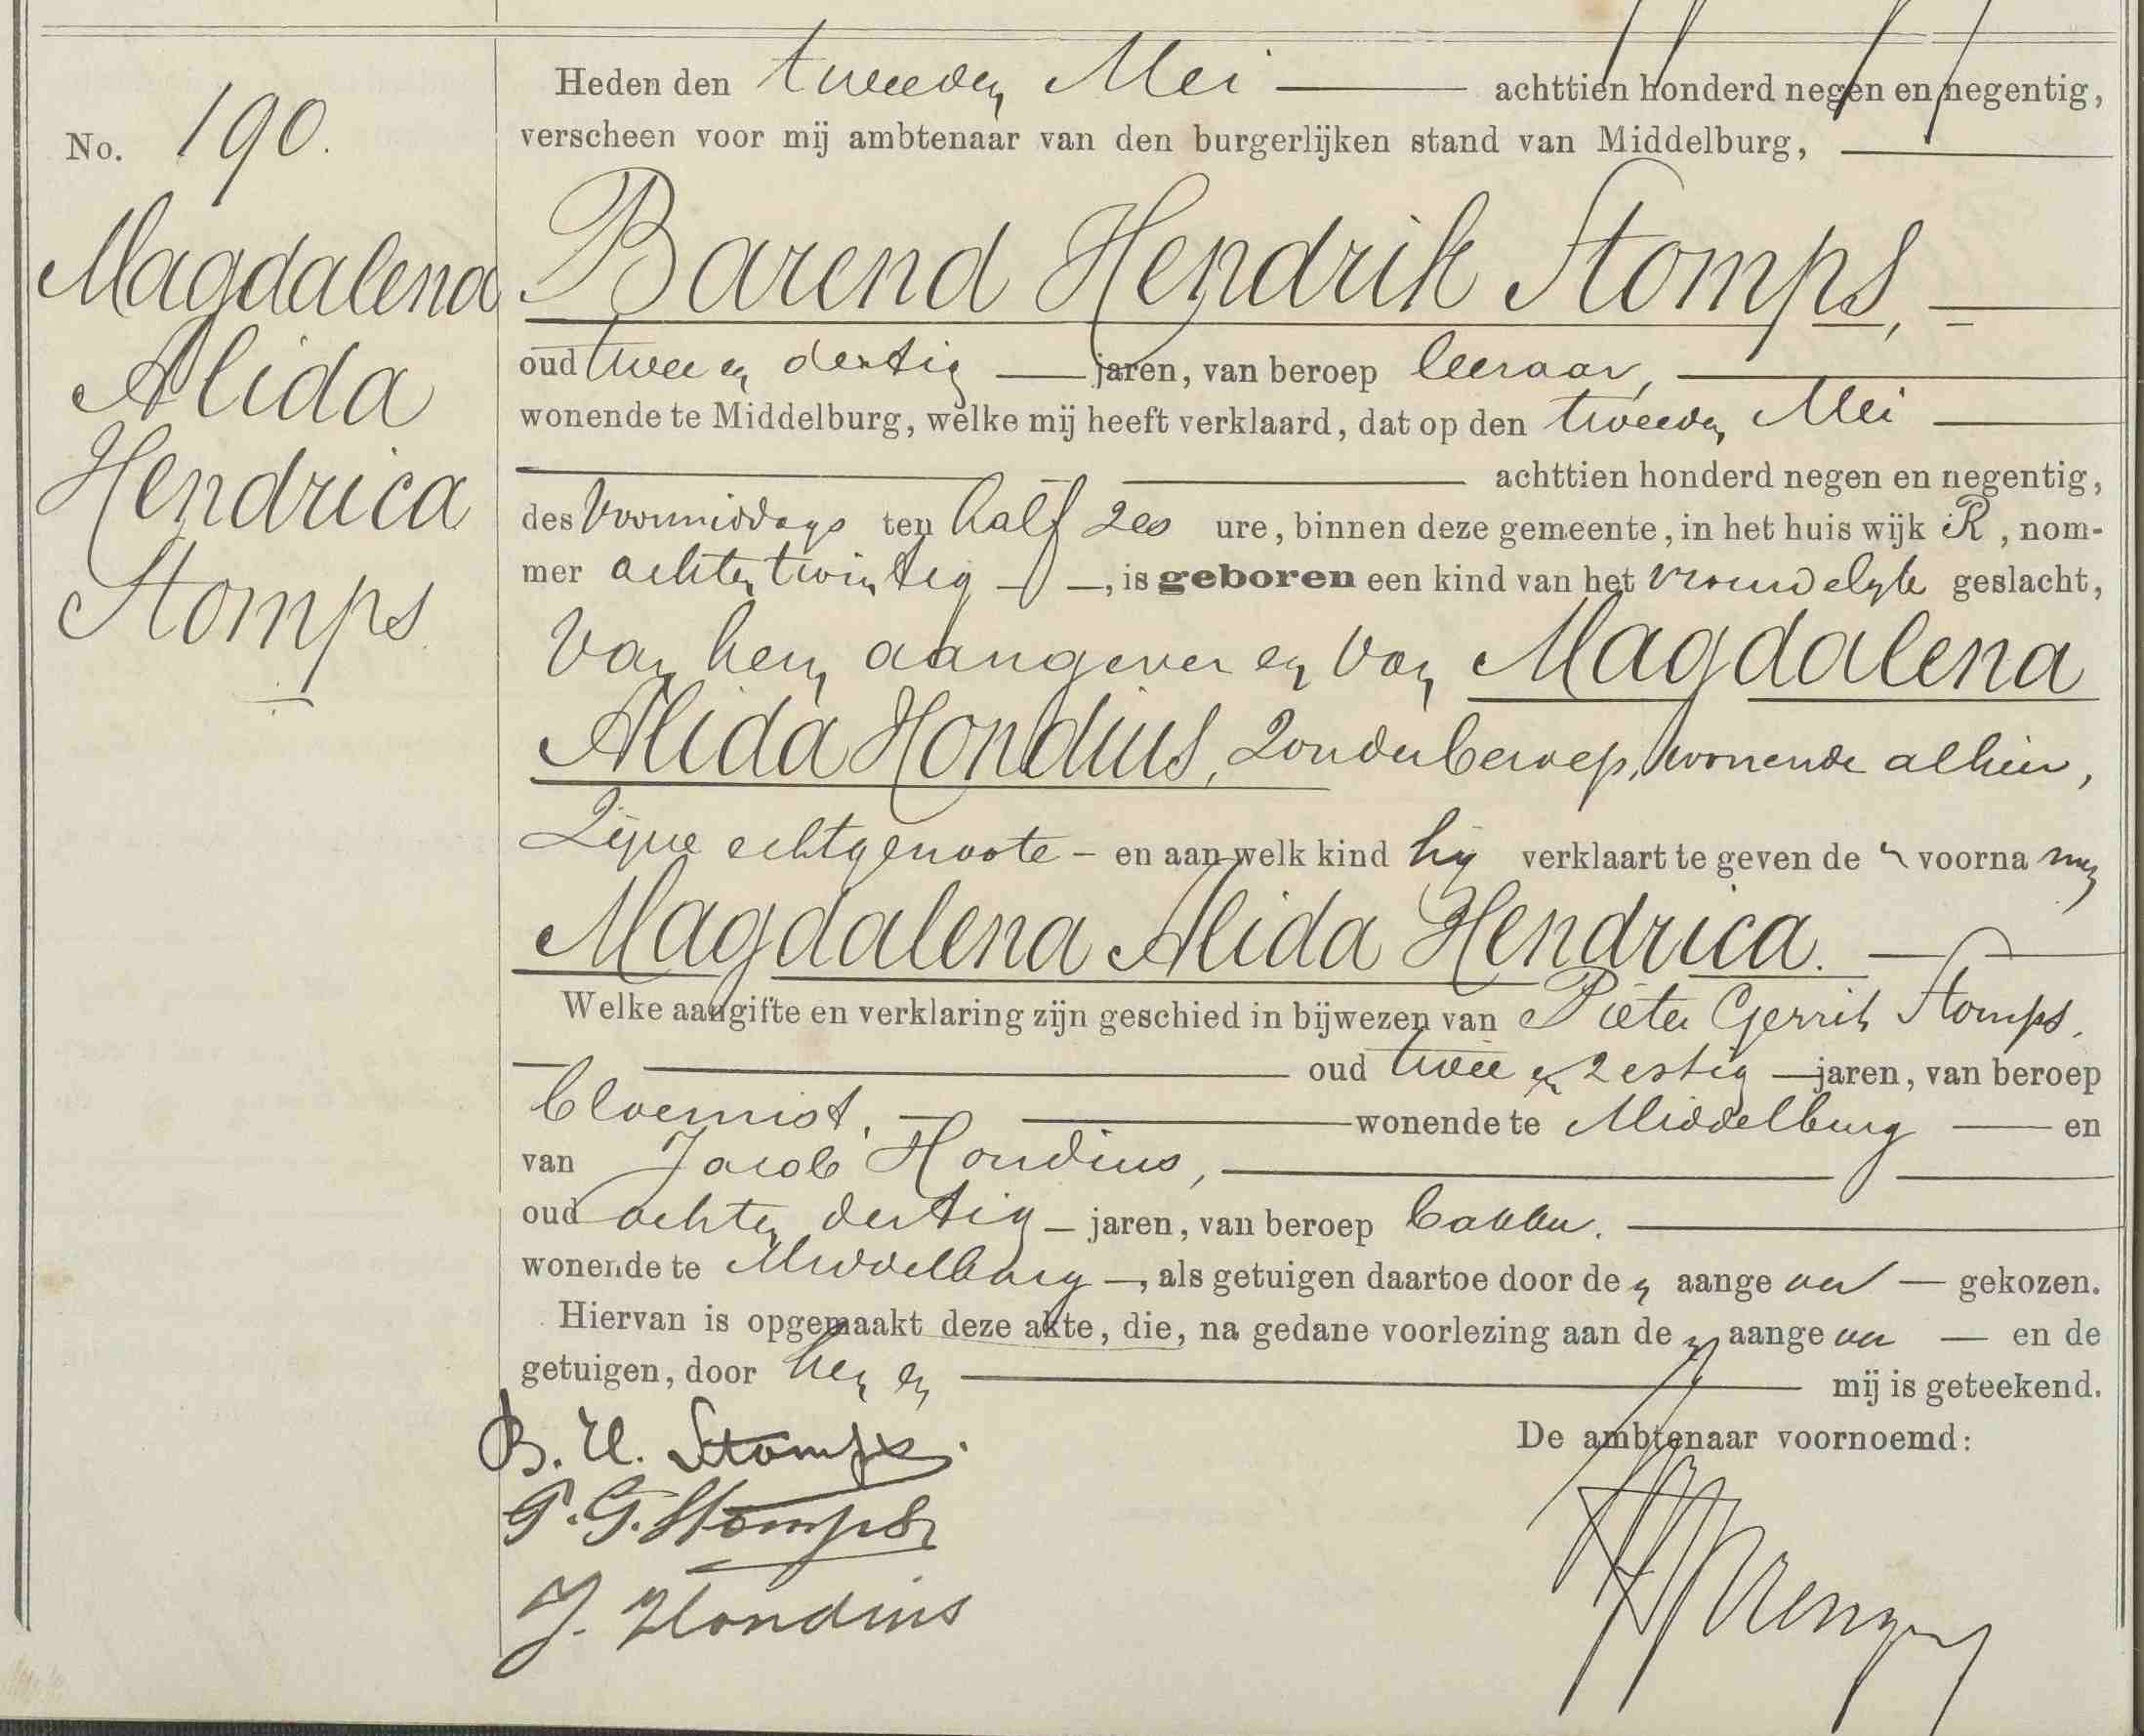 No. 190.
Magdalena
Alida
Hendrica
Stomps.
Heden den tweeden Mei achttien honderd negen en negentig,
verscheen voor mij ambtenaar van den burgerlijken stand van Middelburg,
Barend Hendrik Stomps,
oud twee en dertig jaren, van beroep leeraar,
wonende te Middelburg, welke mij heeft verklaard, dat op den tweeden Mei
achttien honderd negen en negentig,
des Voormiddags ten half zes ure, binnen deze gemeente, in het huis wijk R, nom-
mer achtentwintig, is geboren een kind van het vrouwelijk geslacht,
van hem aangever en van Magdalena
Alida Hondius, zonder beroep, wonende alhier,
Zijne echtgenoote – en aan welk kind hij verklaart te geven de voornamen
Magdalena Alida Hendrica.
Welke aangifte en verklaring zijn geschied in bijwezen van Pieter Gerrit Stomps,
oud twee en zestig jaren, van beroep
bloemist, wonende te Middelburg en
van Jacob Hondius,
oud achten dertig – jaren, van beroep bakker.
wonende te Middelburg –, als getuigen daartoe door den aangever – gekozen.
Hiervan is opgemaakt deze akte, die, na gedane voorlezing aan den aangever — en de
getuigen, door hen en mij is geteekend.
De ambtenaar voornoemd:
B. H. Stomps.
P. G. Stomps
J. Hondius